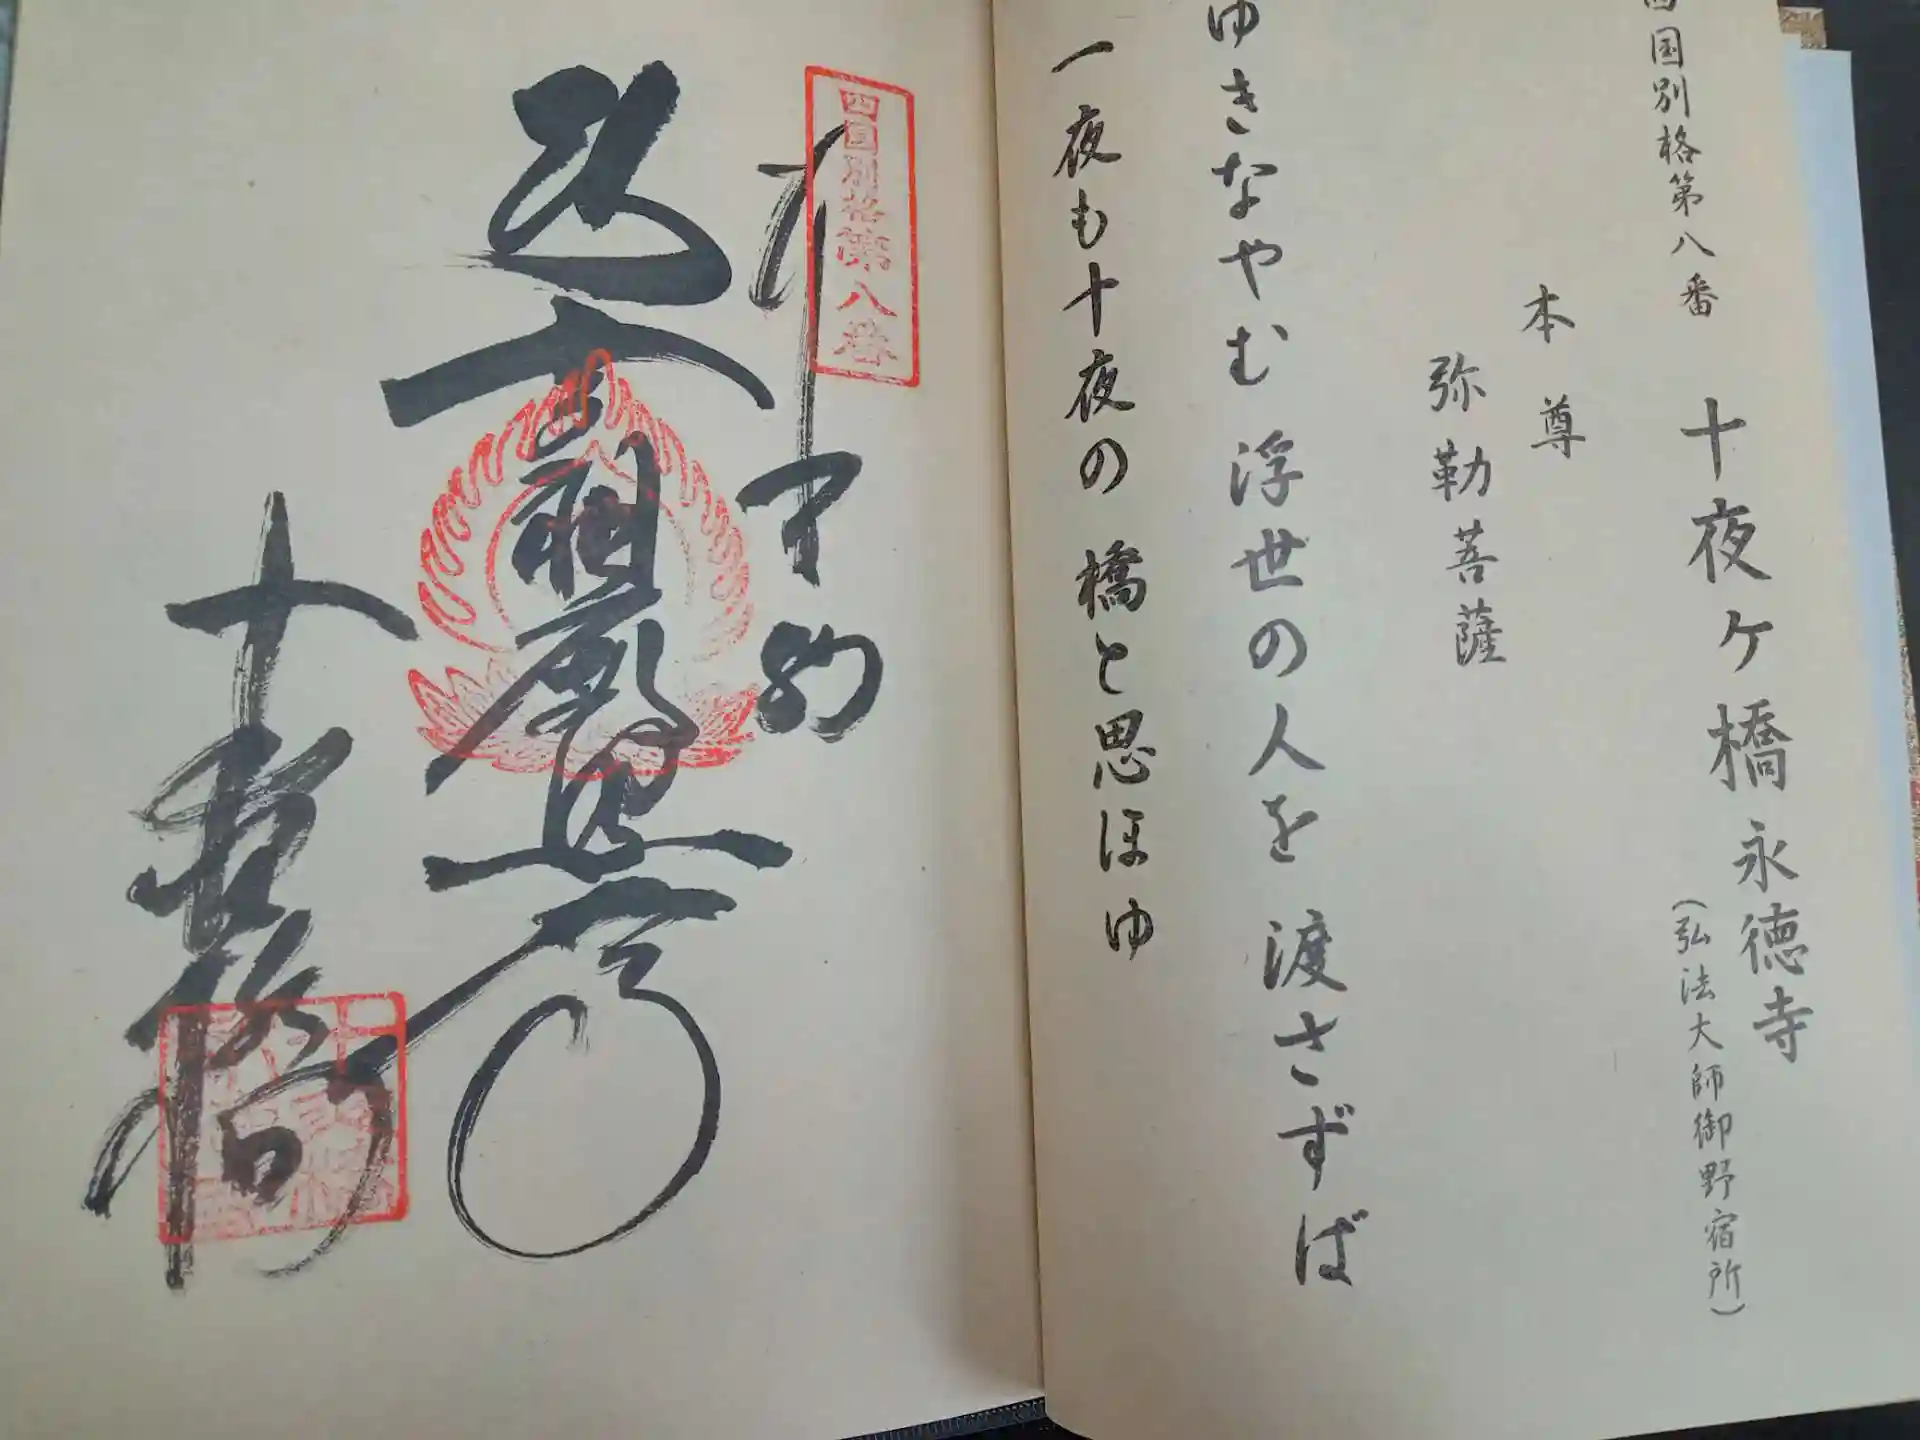 四国別格第八番
十夜ケ橋永徳寺
(弘法大師御野宿所)
本尊
弥勒菩薩
ゆきなやむ浮世の人を渡さずば
一夜も十夜の橋と思ほゆ
四国別格第八番
奉納
弘
十夜橋